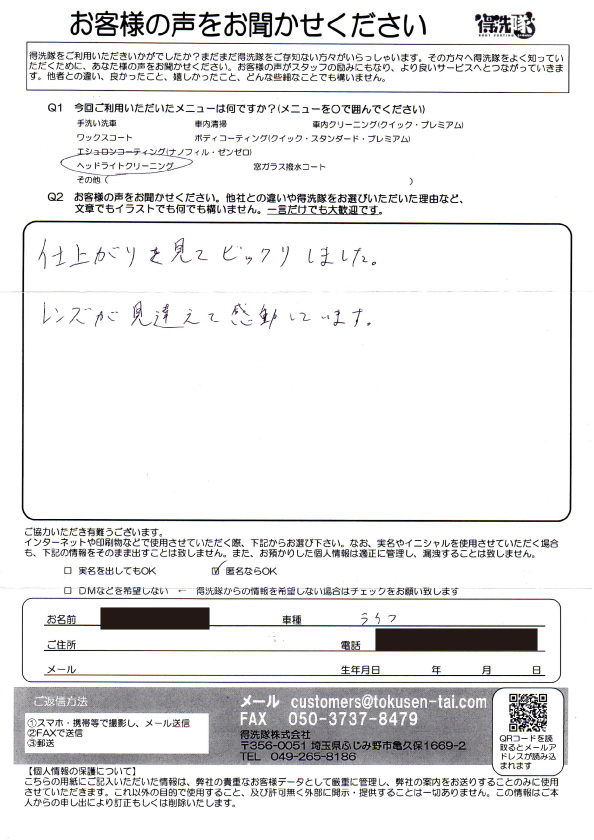 お客様の声をお聞かせください
得洗隊
得洗隊をご利用いただきいかがでしたか?まだまだ得洗隊をご存知ない方々がいらっしゃいます。その方々へ得洗隊をよく知っていただくために、あなた様の声をお聞かせください。お客様の声がスタッフの励みにもなり、より良いサービスへとつながっていきます。他者との違い、良かったこと、嬉しかったこと、どんな些細なことでも構いません。
Q1 今回ご利用いただいたメニューは何ですか?(メニューを〇で囲んでください)
手洗い洗車 車内清掃 車内クリーニング(クイック・プレミアム)
ワックスコート ボディコーティング(クイック・スタンダード・プレミアム)
エシュロンコーティング(ナノフィル・ゼンゼロ)
ヘッドライトクリーニング 窓ガラス撥水コート
その他( )
Q2 お客様の声をお聞かせください。他社との違いや得洗隊をお選びいただいた理由など、
文章でもイラストでも何でも構いません。一言だけでも大歓迎です。
仕上がりを見てビックリしました。
レンズが見違えて感動しています。
ご協力いただき有難うございます。
インターネットや印刷物などで使用させていただく際、下記からお選び下さい。なお、実名やイニシャルを使用させていただく場合
も、下記の情報をそのまま出すことは致しません。また、お預かりした個人情報は適正に管理し、漏洩することは致しません。
□ 実名を出してもOK ☑ 匿名ならOK
□ DMなどを希望しない ← 得洗隊からの情報を希望しない場合はチェックをお願い致します
お名前 車種 ライフ
ご住所 電話
メール 生年月日 年 月 日
ご返信方法
①スマホ・携帯等で撮影し、メール送信
②FAXで送信
③郵送
メール customers@tokusen-tai.com
FAX 050-3737-8479
得洗隊株式会社
〒356-0051 埼玉県ふじみ野市亀久保1669-2
TEL 049-265-8186
QRコードを読
取るとメールア
ドレスが読み込
まれます
【個人情報の保護について】
こちらの用紙にご記入いただいた情報は、弊社の貴重なお客様データとして厳重に管理し、弊社の案内をお送りすることのみに使用
させていただきます。これ以外の目的で使用すること、及び許可無く外部に開示・提供することは一切ありません。この情報はご本
人からの申し出により訂正もしくは削除いたします。